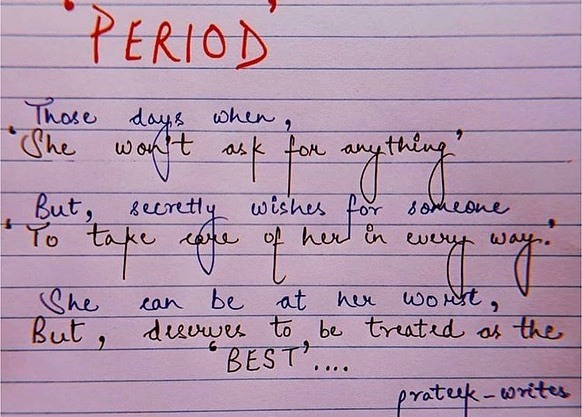 'PERIOD'
Those days when,
'She won't ask for anything'
But, secretly wishes for someone
'To take care of her in every way.'
She can be at her worst,
But, deserves to be treated as the
'BEST'....
prateek_writes